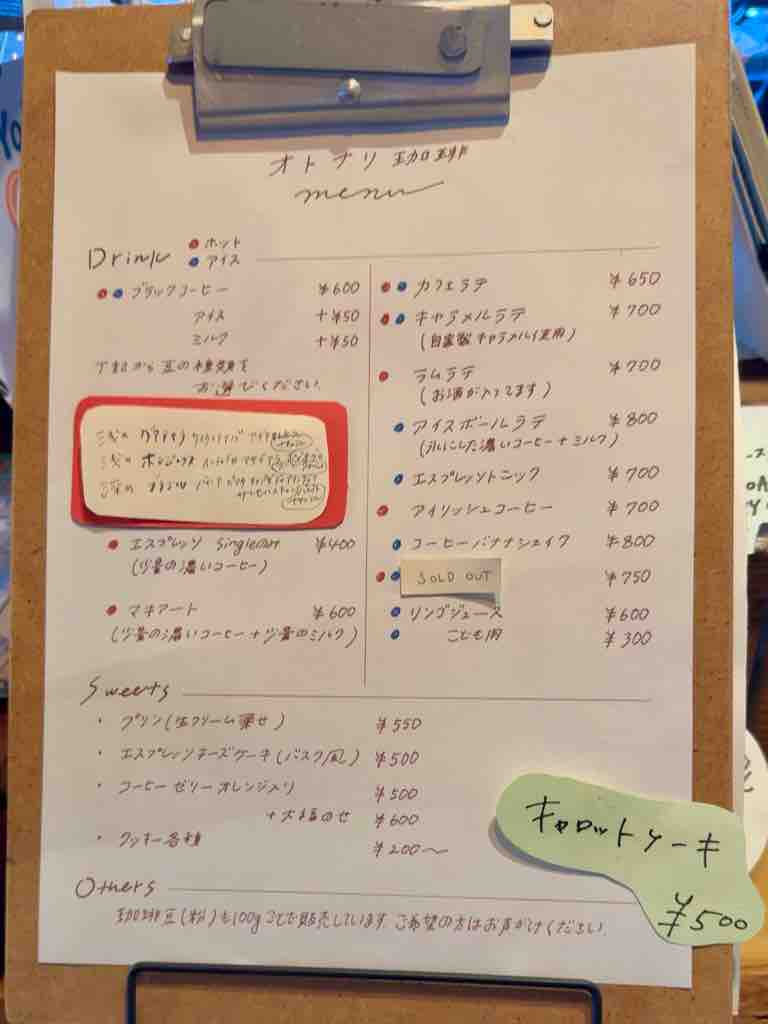 オトナリ珈琲
menu
Drink
ホット
アイス
ブラックコーヒー ¥600
アイス +¥50
ミルク +¥50
下記から豆の種類を
お選びください
浅め
浅め
深め
エスプレッソ single ¥400
(少量の濃いコーヒー)
マキアート ¥600
(少量の濃いコーヒー+少量のミルク)
カフェラテ ¥650
キャラメルラテ ¥700
(自家製キャラメル使用)
ラムラテ ¥700
(お酒が入ってます)
アイスボールラテ ¥800
(氷にした濃いコーヒー+ミルク)
エスプレッソトニック ¥700
アイリッシュコーヒー ¥700
コーヒーバナナシェイク ¥800
SOLD OUT ¥750
リンゴジュース ¥600
こども用 ¥300
Sweets
・プリン(生クリーム乗せ) ¥550
・エスプレッソチーズケーキ(バスク風) ¥500
・コーヒーゼリーオレンジ入り ¥500
+大福のせ ¥600
・クッキー各種 ¥200〜
キャロットケーキ
¥500
Others
珈琲豆(粉)も100gごとで販売しています。ご希望の方はお声がけください。